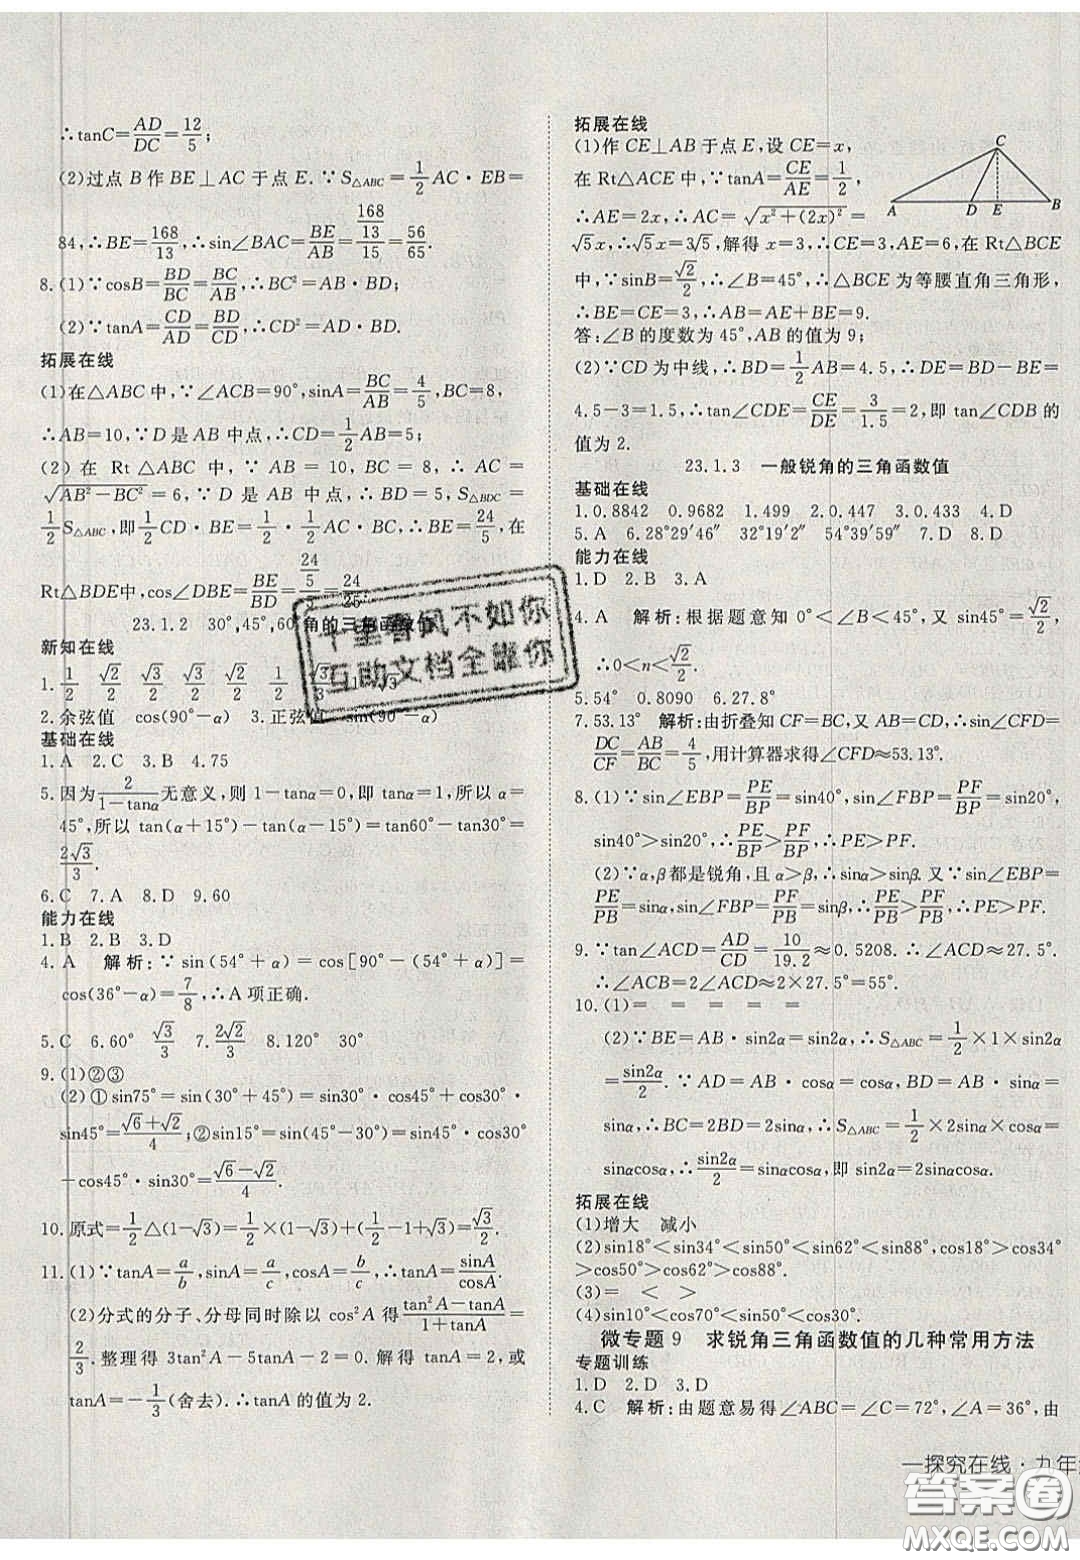 ∴tanC=AD/DC=12/5;
(2)过点B作BE⊥AC于点E.∵S△ABC=1/2AC·EB=
84,∴BE=168/13,∴sin∠BAC=BE/AB=(168/13)/15=56/65.
8.(1)∵cosB=BD/BC=BC/AB,∴BC²=AB·BD;
(2)∵tanA=CD/AD=BD/CD,∴CD²=AD·BD.
拓展在线
(1)在△ABC中,∵∠ACB=90°,sinA=BC/AB=4/5,BC=8,
∴AB=10,∵D是AB中点,∴CD=1/2AB=5;
(2)在Rt△ABC中,∵AB=10,BC=8,∴AC=
√(AB²-BC²)=6,∵D是AB中点,∴BD=5,S△BDC=
1/2S△ABC,即1/2CD·BE=1/2·1/2AC·BC,∴BE=24/5,在
Rt△BDE中,cos∠DBE=BE/BD=(24/5)/5=24/25.
23.1.2 30°,45°,60°角的三角函数值
新知在线
1.1/2 √2/2 √3/2 √3/2 √2/2 1/2 √3/3 1 √3
2.余弦值 cos(90°-α) 3.正弦值 sin(90°-α)
基础在线
1.A 2.C 3.B 4.75
5.因为2/(1-tanα)无意义,则1-tanα=0,即tanα=1,所以α=
45°,所以tan(α+15°)-tan(α-15°)=tan60°-tan30°=
2√3/3.
6.C 7.A 8.D 9.60
能力在线
1.B 2.B 3.D
4.A 解析:∵sin(54°+α)=cos[90°-(54°+α)]=
cos(36°-α)=7/8,∴A项正确.
5.C 6.60° √3/3 7.2√2/3 8.120° 30°
9.(1)②③
(2)①sin75°=sin(30°+45°)=sin30°·cos45°+cos30°·
sin45°=(√6+√2)/4;②sin15°=sin(45°-30°)=sin45°·cos30°
-cos45°·sin30°=(√6-√2)/4.
10.原式=1/2△(1-√3)=1/2×(1-√3)+(1/2-1+√3)=√3/2.
11.(1)∵tanA=a/b,sinA=a/c,cosA=b/c,∴tanA=sinA/cosA.
(2)分式的分子、分母同时除以cos²A得(tan²A-tanA)/(1+tanA)=
2/3.整理得3tan²A-5tanA-2=0.解得tanA=2,或
tanA=-1/3(舍去).∴tanA的值为2.
拓展在线
(1)作CE⊥AB于点E,设CE=x,
在Rt△ACE中,∵tanA=CE/AE=1/2,
∴AE=2x,∴AC=√(x²+(2x)²)=
√5x,∴√5x=3√5,解得x=3,∴CE=3,AE=6,在Rt△BCE
中,∵sinB=√2/2,∴∠B=45°,∴△BCE为等腰直角三角形,
∴BE=CE=3,∴AB=AE+BE=9.
答:∠B的度数为45°,AB的值为9;
(2)∵CD为中线,∴BD=1/2AB=4.5,∴DE=BD-BE=
4.5-3=1.5,∴tan∠CDE=CE/DE=3/1.5=2,即tan∠CDB的
值为2.
A D E B C
23.1.3 一般锐角的三角函数值
基础在线
1.0.8842 0.9682 1.499 2.0.447 3.0.433 4.D
5.A 6.28°29′46″ 32°19′2″ 54°39′59″ 7.D 8.D
能力在线
1.D 2.B 3.A
4.A 解析:根据题意知0°<∠B<45°,又sin45°=√2/2,
∴0<n<√2/2.
5.54° 0.8090 6.27.8°
7.53.13° 解析:由折叠知CF=BC,又AB=CD,∴sin∠CFD=
DC/CF=AB/BC=4/5,用计算器求得∠CFD≈53.13°.
8.(1)∵sin∠EBP=PE/BP=sin40°,sin∠FBP=PF/BP=sin20°,
sin40°>sin20°,∴PE/BP>PF/BP,∴PE>PF.
(2)∵α,β都是锐角,且α>β,∴sinα>sinβ.又∵sin∠EBP=
PE/PB=sinα,sin∠FBP=PF/PB=sinβ,∴PE/PB>PF/PB,∴PE>PF.
9.∵tan∠ACD=AD/CD=10/19.2≈0.5208.∴∠ACD≈27.5°.
∴∠ACB=2∠ACD≈2×27.5°=55°.
10.(1)= = = = =
(2)∵BE=AB·sin2α=sin2α,∴S△ABC=1/2×1×sin2α
=sin2α/2.∵AD=AB·cosα=cosα,BD=AB·sinα=
sinα,∴BC=2BD=2sinα,∴S△ABC=1/2×2sinα·cosα=
sinαcosα,∴sin2α/2=sinαcosα,即sin2α=2sinαcosα.
拓展在线
(1)增大 减小
(2)sin18°<sin34°<sin50°<sin62°<sin88°,cos18°>cos34°
>cos50°>cos62°>cos88°.
(3)= < >
(4)sin10°<cos70°<sin50°<cos30°.
微专题9 求锐角三角函数值的几种常用方法
专题训练
1.D 2.D 3.D
4.C 解析:由题意易得∠ABC=∠C=72°,∠A=36°,由
—探究在线·九年
千里春风不如你
互助文档全靠你
答案圈
MXQE.COM